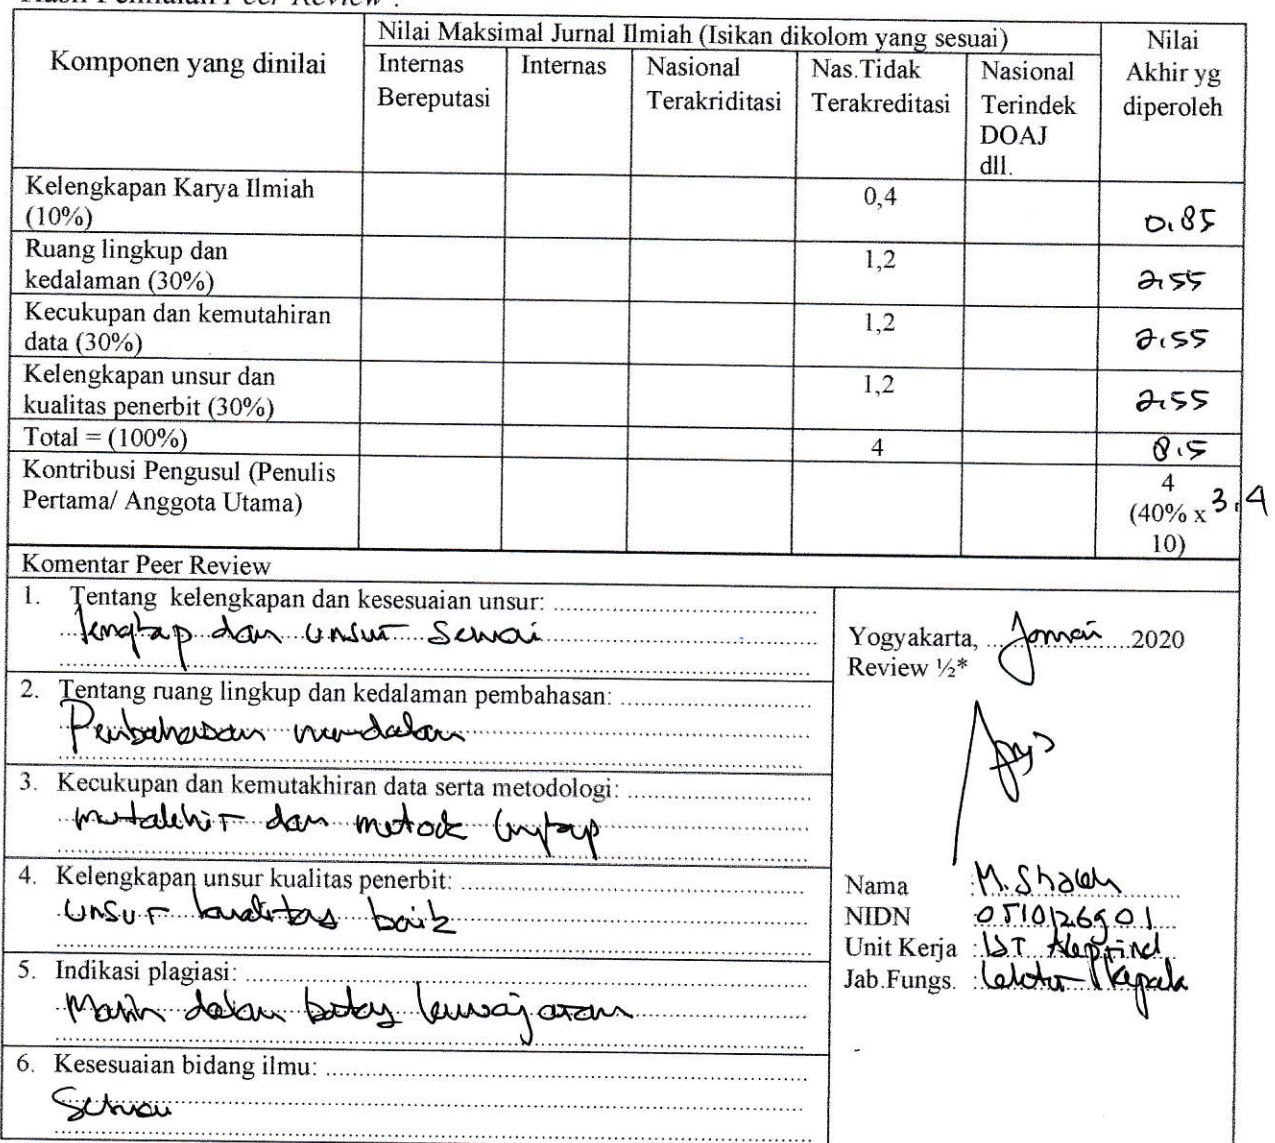 Hasil Penilaian Peer Review :
Komponen yang dinilai
Nilai Maksimal Jurnal Ilmiah (Isikan dikolom yang sesuai)
Nilai Akhir yg diperoleh
Internas Bereputasi
Internas
Nasional Terakriditasi
Nas.Tidak Terakreditasi
Nasional Terindek DOAJ dll.
Kelengkapan Karya Ilmiah (10%)
0,4
0.85
Ruang lingkup dan kedalaman (30%)
1,2
2.55
Kecukupan dan kemutahiran data (30%)
1,2
2.55
Kelengkapan unsur dan kualitas penerbit (30%)
1,2
2.55
Total = (100%)
4
8.5
Kontribusi Pengusul (Penulis Pertama/ Anggota Utama)
4 (40% x 10)
3.4
Komentar Peer Review
1. Tentang kelengkapan dan kesesuaian unsur:
lengkap dan unsur sesuai
2. Tentang ruang lingkup dan kedalaman pembahasan:
Pembahasan mendalam
3. Kecukupan dan kemutakhiran data serta metodologi:
mutakhir dan metode lengkap
4. Kelengkapan unsur kualitas penerbit:
unsur kualitas baik
5. Indikasi plagiasi:
Masih dalam batas kewajaran
6. Kesesuaian bidang ilmu:
Sesuai
Yogyakarta, Januari 2020
Review ½*
Nama : M. Sholeh
NIDN : 0510126901
Unit Kerja : IST Akprind
Jab.Fungs. : Lektor Kepala